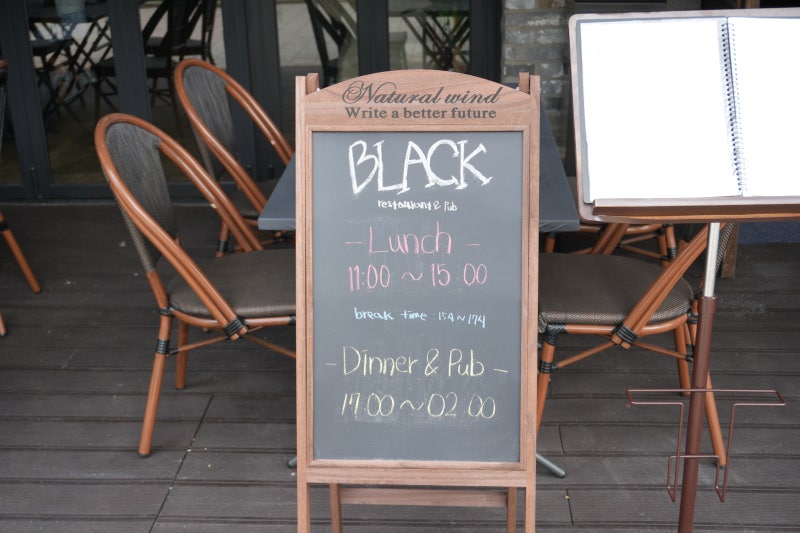 Natural wind
Write a better future
BLACK
restaurant & Pub
- Lunch -
11:00 ~ 15:00
break time : 15시 ~ 17시
- Dinner & Pub -
17:00 ~ 02:00